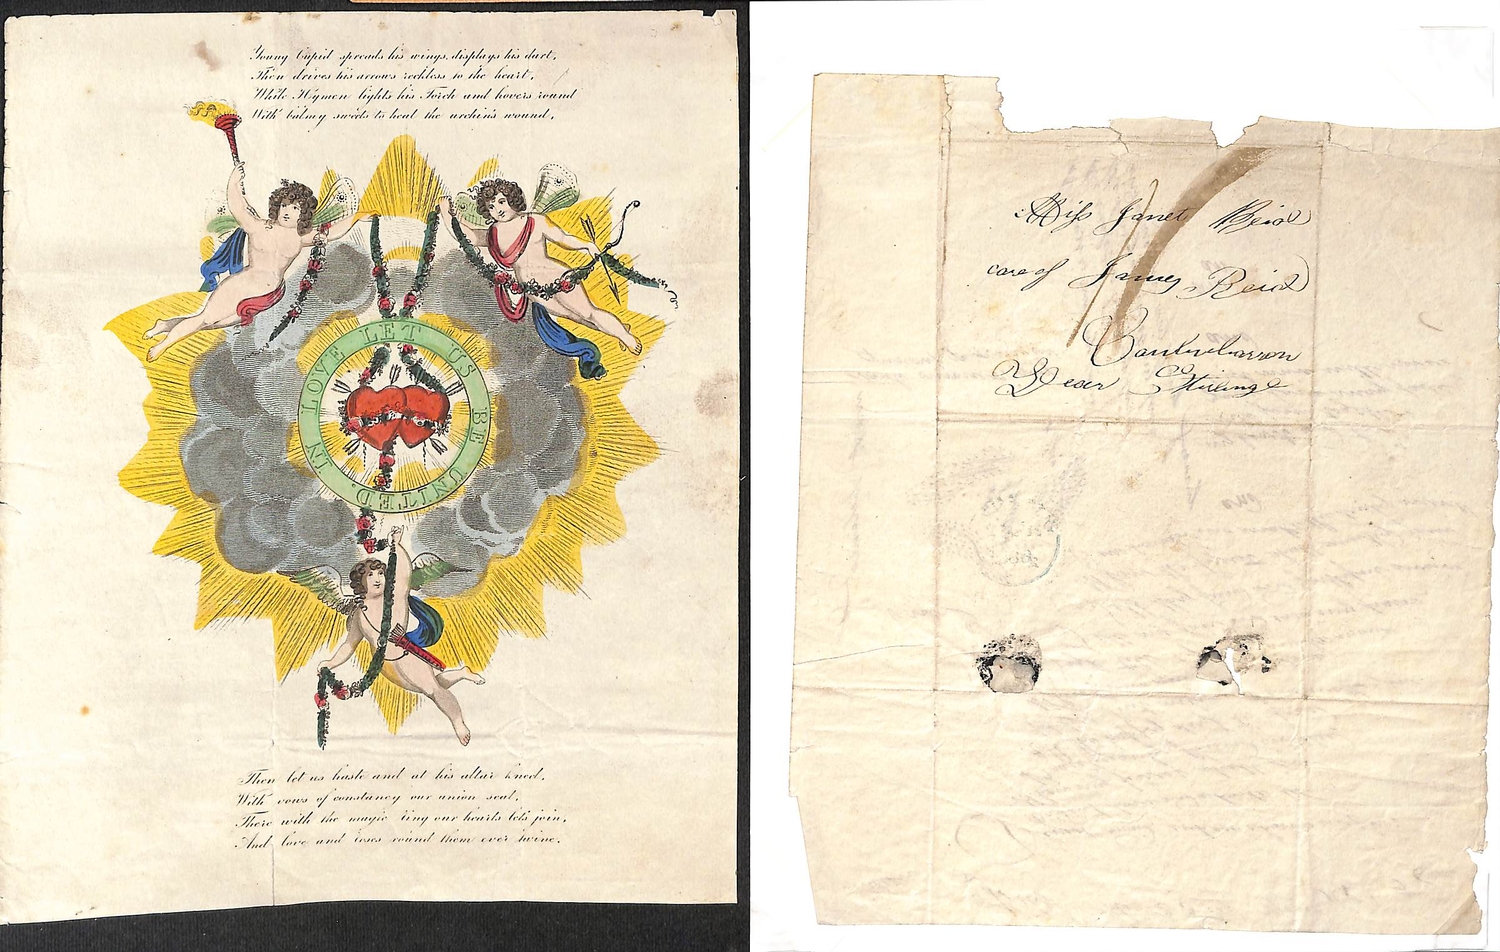 Young Cupid spreads his wings, displays his dart,
Then drives his arrows reckless to the heart,
While Hymen lights his Torch and hovers round
With balmy sweets to heal the urchin's wound,
IN LOVE LET US BE UNITED.
Then let us haste and at his altar kneel,
With vows of constancy our union seal,
There with the magic ring our hearts let's join,
And love and roses round them ever twine.
Miss Janet Reid
care of James Reid
Near Stirling